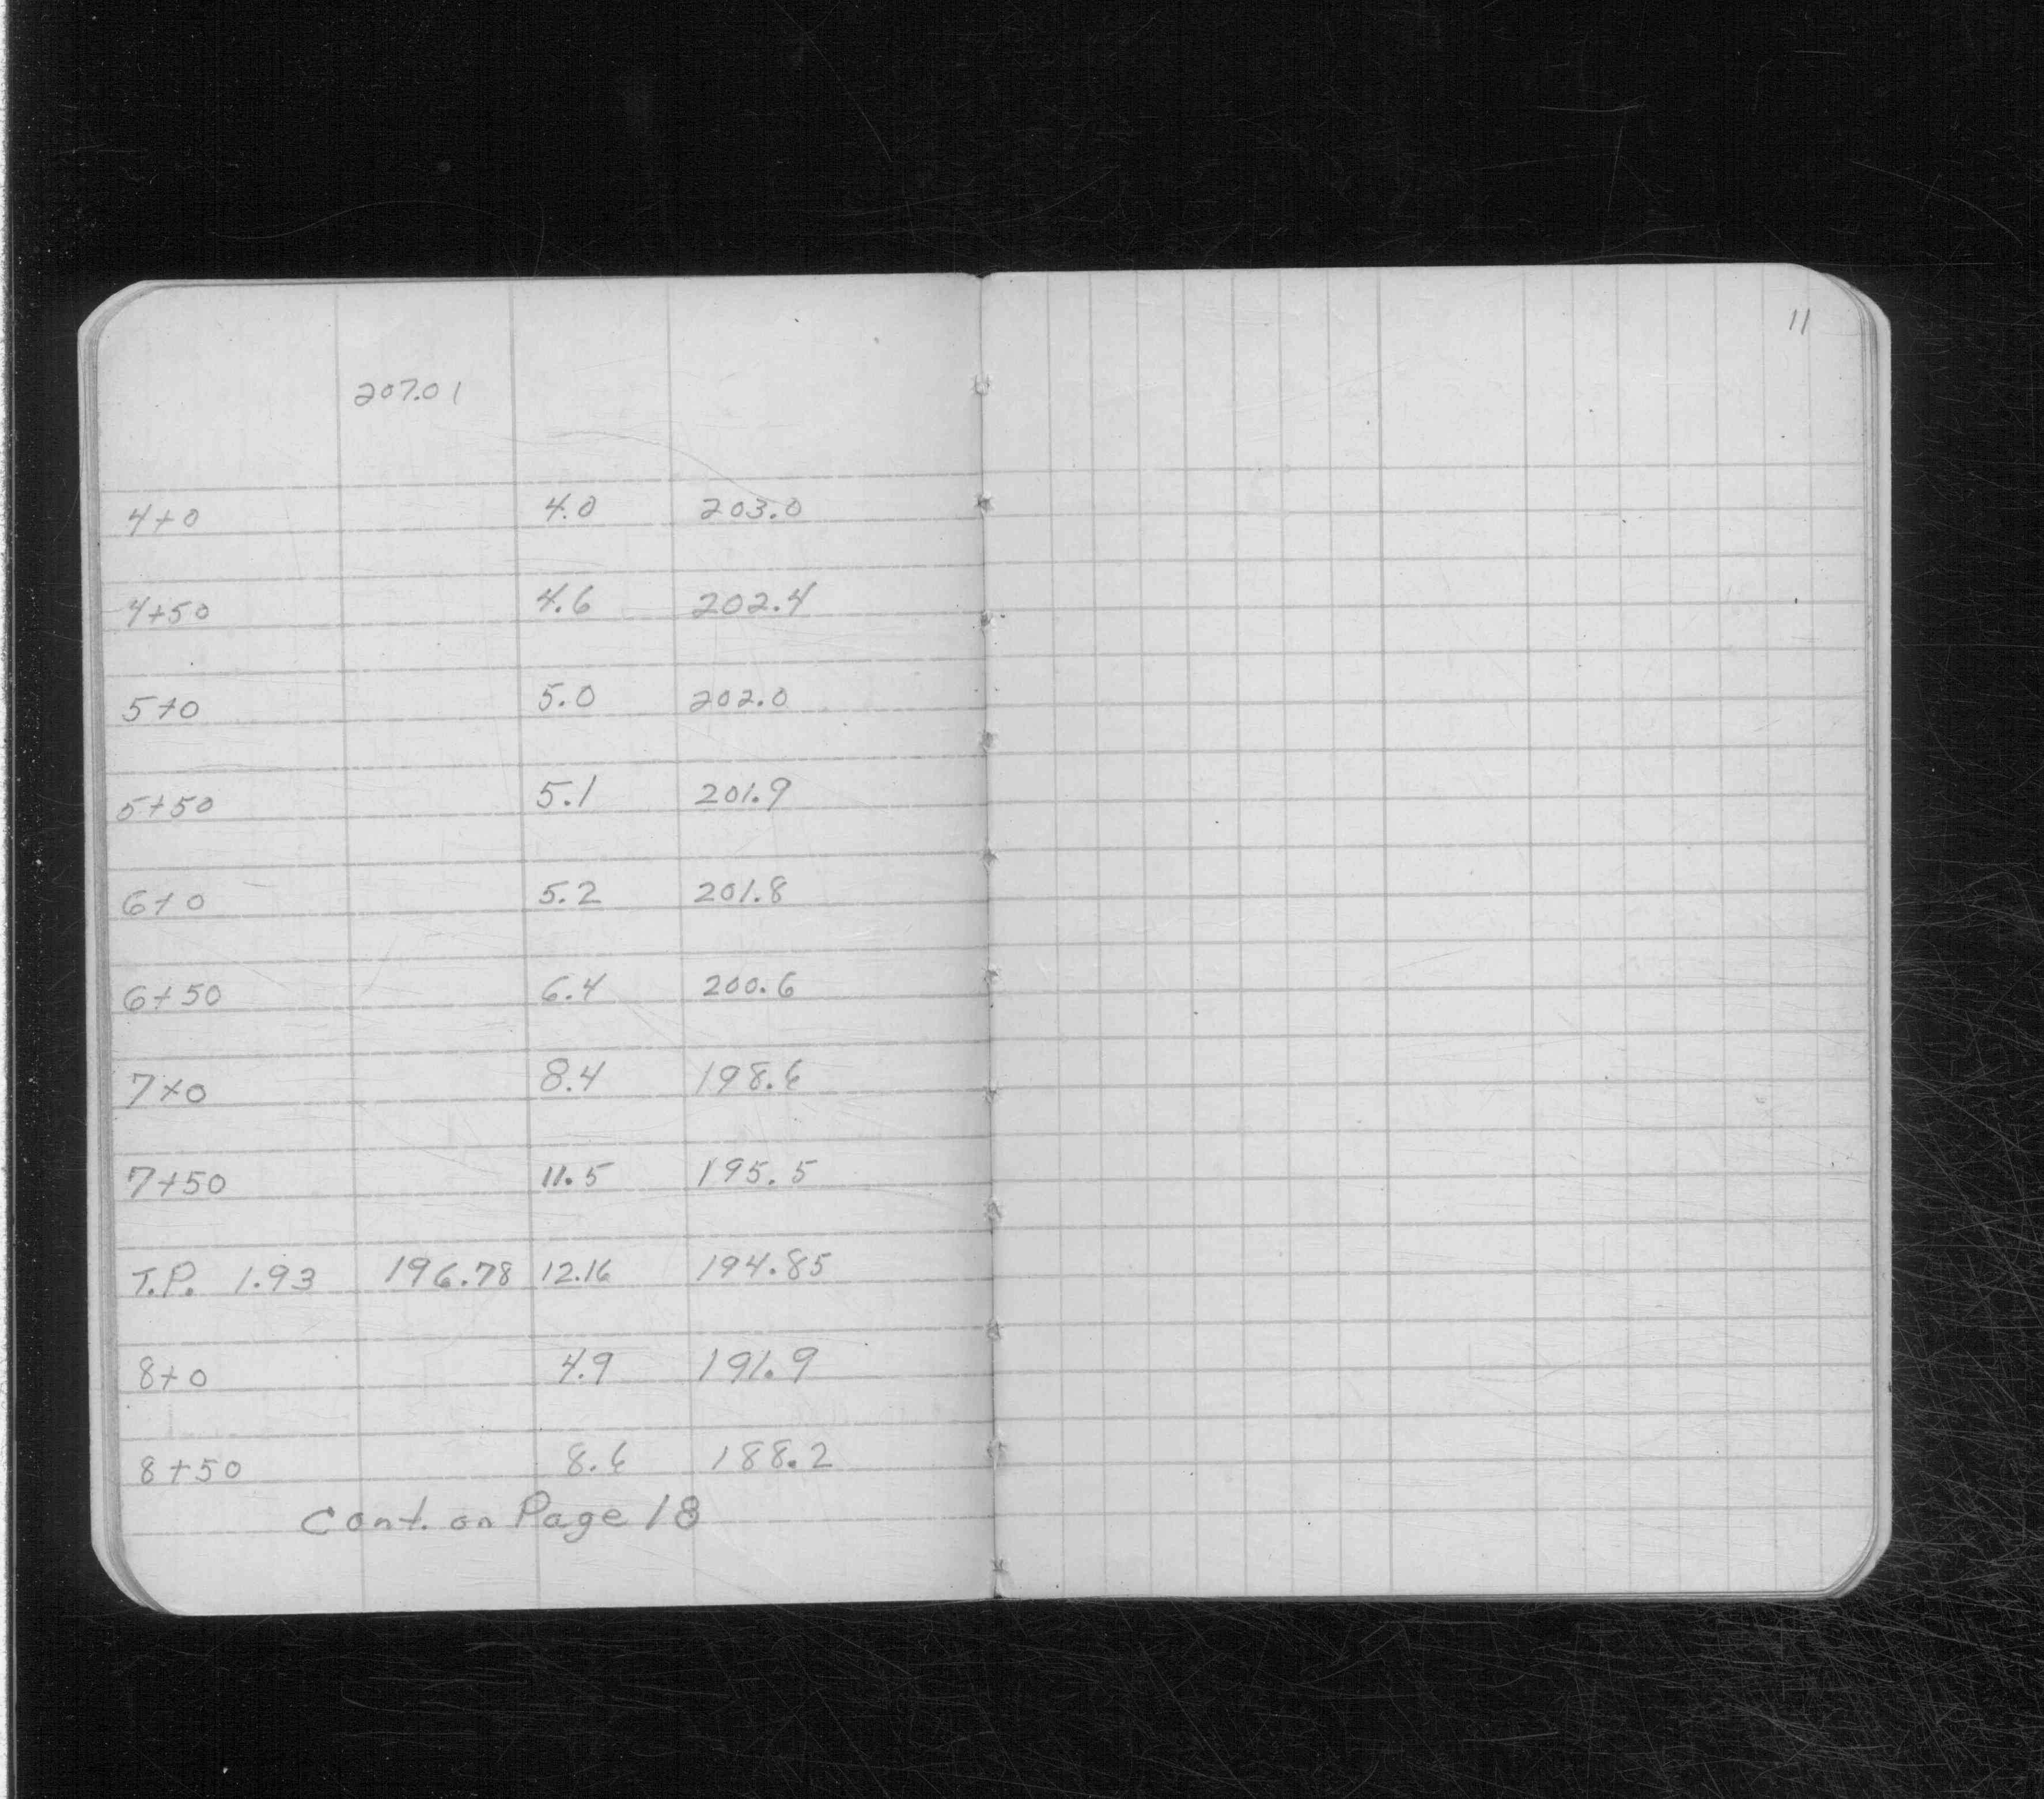 11
207.01
4+0 4.0 203.0
4+50 4.6 202.4
5+0 5.0 202.0
5+50 5.1 201.9
6+0 5.2 201.8
6+50 6.4 200.6
7+0 8.4 198.6
7+50 11.5 195.5
T.P. 1.93 196.78 12.16 194.85
8+0 4.9 191.9
8+50 8.6 188.2
Cont. on Page 18